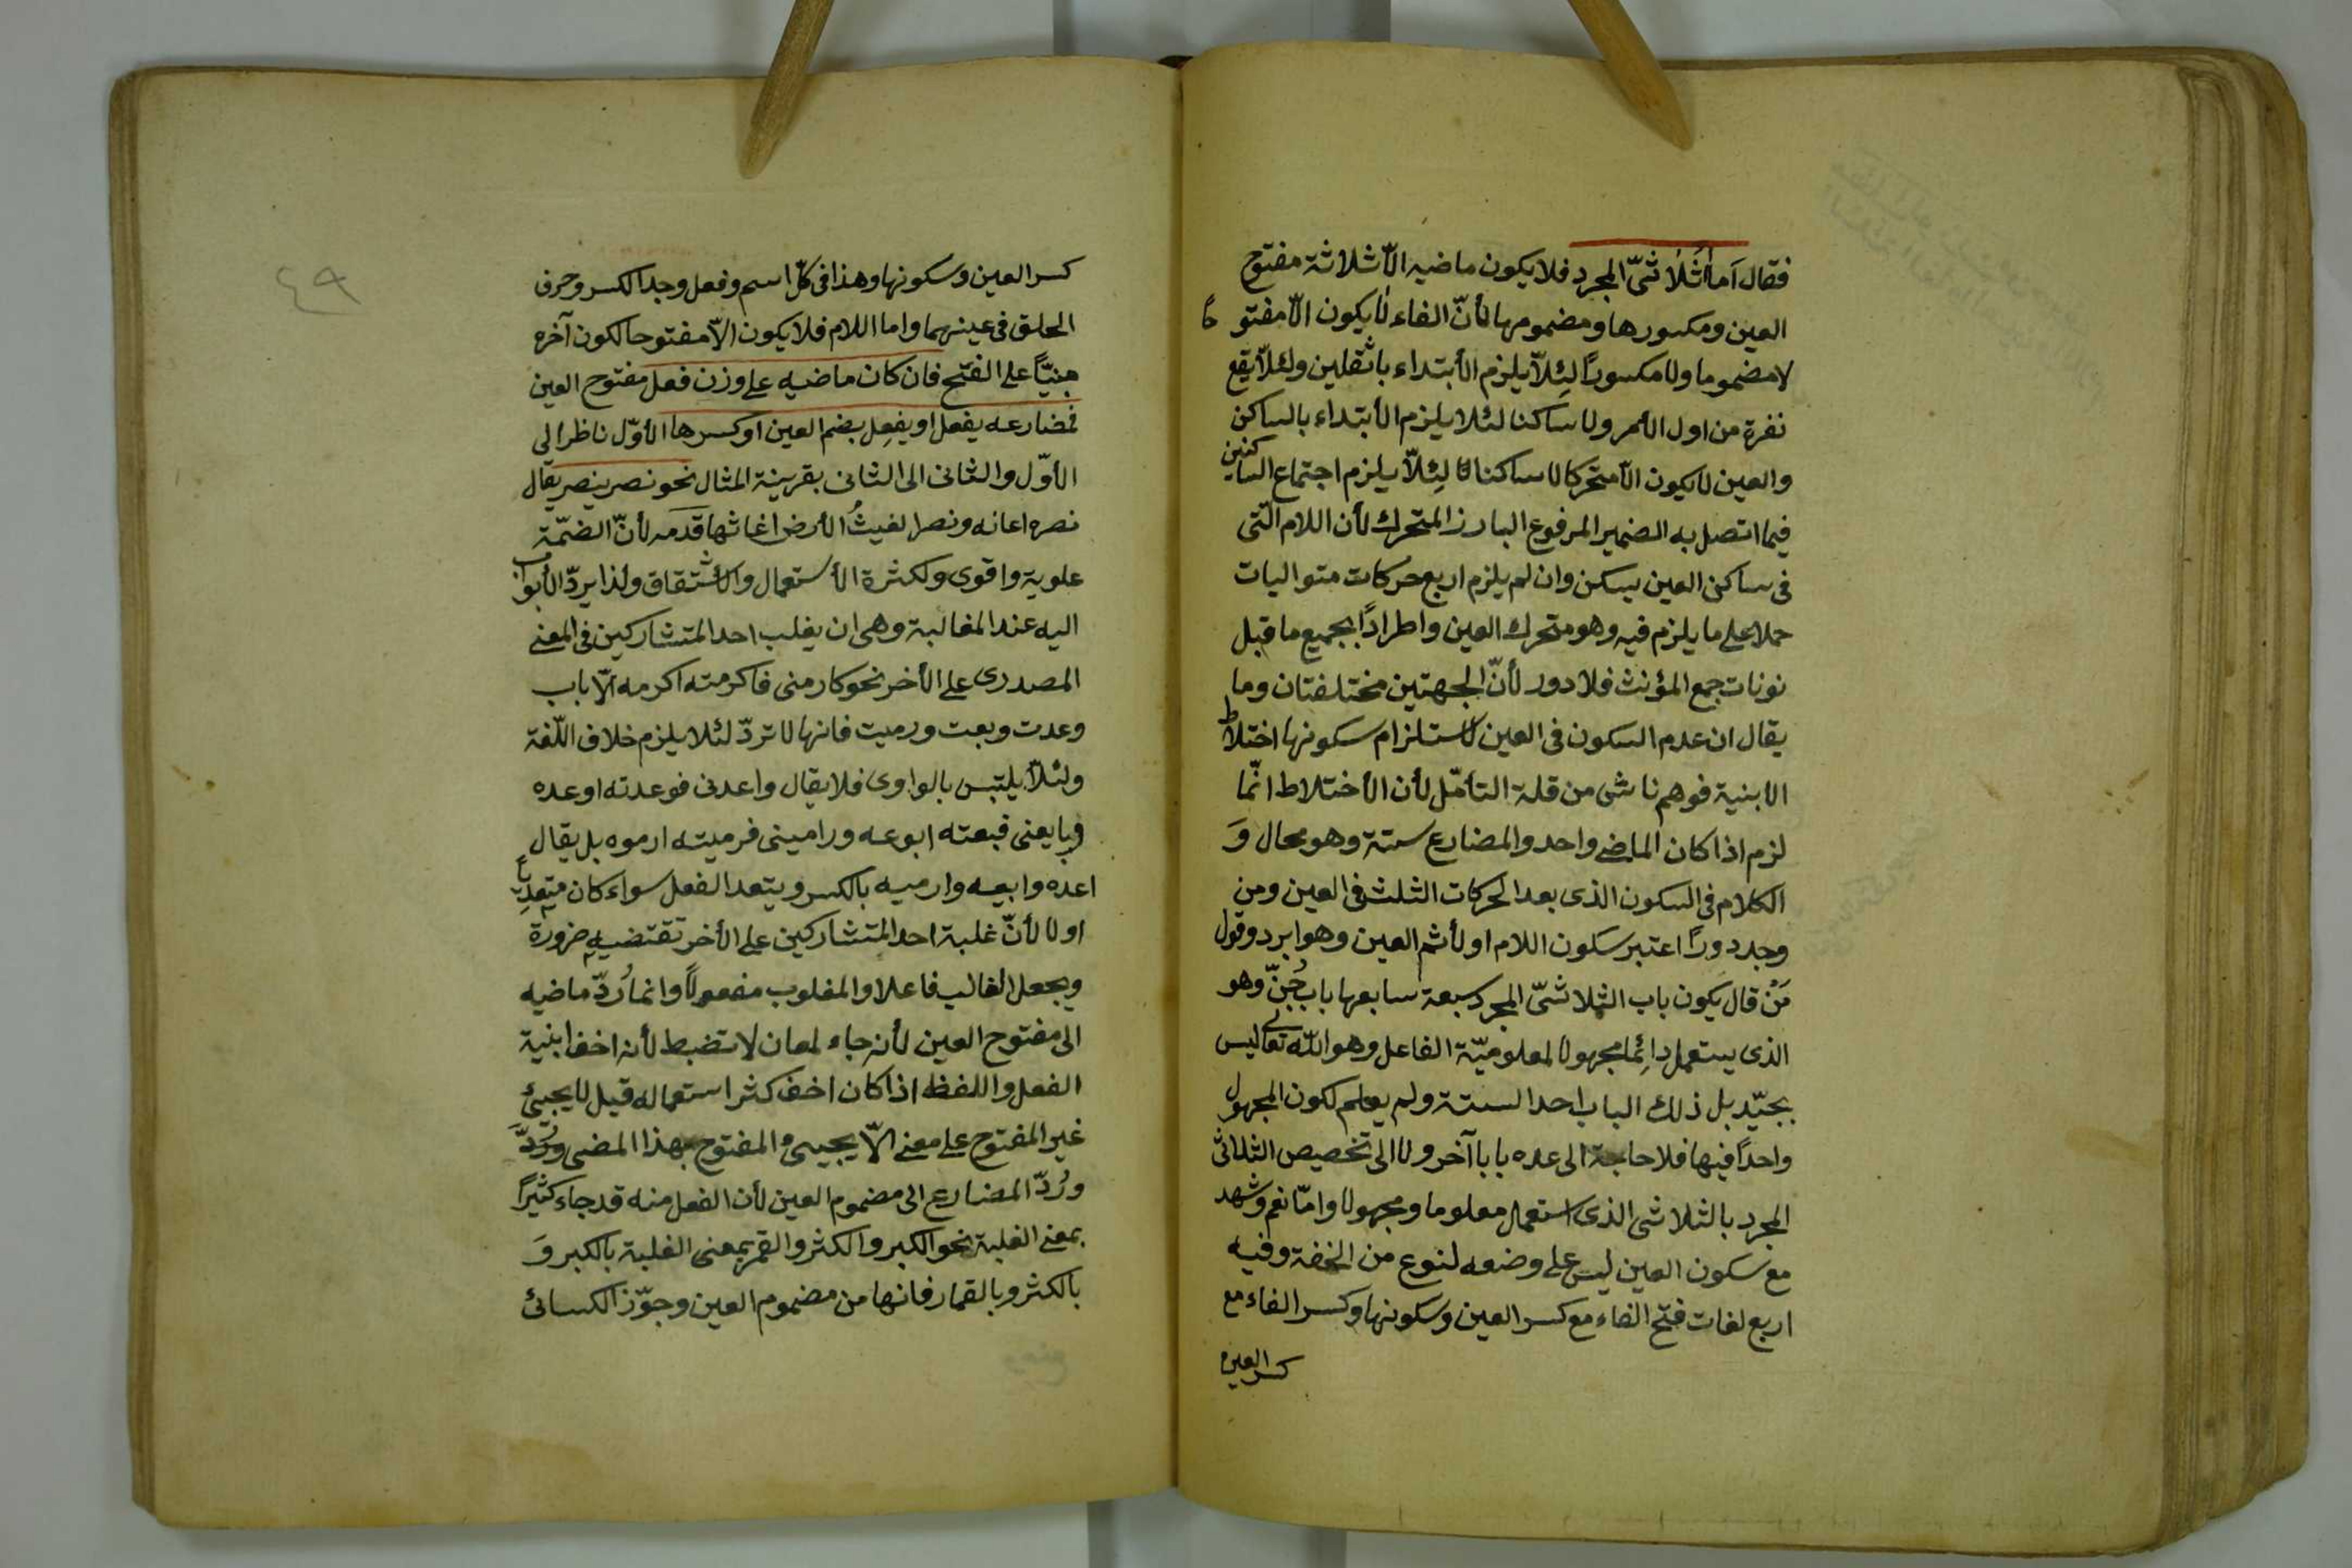 فقال اَما الثُلٰاثىّ المجرد فلا يكون ماضيه الاّ ثلاثة مفتوح
العين ومكسورها ومضمومها لأنّ الفاء لا يكون الاّ مفتوحًا
لا مضموما ولا مكسورًا لئِلاّ يلزم الأبتداء باثقلين ولئلاّ يقع
نفرة من اول الأمر ولا ساكنا لئلا يلزم الأبتداء بالساكن
والعين لا يكون الاّ متحركا لا ساكنا لئِلاّ يلزم اجتماع الساكنين
فيما اتصل به الضمير المرفوع البارز المتحرك لأن اللام الّتى
فى ساكن العين يسكن وان لم يلزم اربع حركات متواليات
حملا على ما يلزم فيه وهو متحرك العين واطرادًا بجميع ما قبل
نونات جمع المؤنث فلا دور لأنّ الجهتين مختلفتان وما
يقال ان عدم السكون فى العين لاستلزام سكونها اختلاط
الابنية فوهم ناشى من قلة التأمّل لأن الأختلاط انّما
لزم اذا كان الماضى واحد والمضارع ستة وهو محال وَ
الكلام فى السكون الذى بعد الحركات الثلث فى العين ومن
وجد دورًا اعتبر سكون اللام اولأ ثم العين وهو ابرد وقول
مَنْ قال يكون باب الثلاثىّ المجرد سبعة سابعها باب جُنّ وهو
الذى يستعمل دائِما مجهولا لمعلوميّة الفاعل وهو اللّه تعالى ليس
بجيّد بل ذلك الباب احد الستة ولم يعلم لكون المجهول
واحدًا فيها فلا حاجة الى عده بابا آخر ولا الى تخصيص الثلاثى
المجرد بالثلاثى الذى استعمل معلوما ومجهولا وامّا نعم وشهد
مع سكون العين ليس على وضعه لنوع من الخفة وفيه
اربع لغات فتح الفاء مع كسر العين وسكونها وكسر الفاء مع
كسر العين
٤٩
كسر العين وسكونها وهذا فى كلّ اسم وفعل وجد الكسر وحرف
الحلق فى عينهما واما اللام فلا يكون الاّ مفتوحا لكون آخره
مبنيّاً على الفتح فان كان ماضيه على وزن فعل مفتوح العين
فمضارعه يفعل او يفعِل بضم العين او كسرها الأوّل ناظر الى
الأوّل والثانى الى الثانى بقرينة المثال نحو نصر ينصر يقال
نصره اعانه ونصر الغيثُ الأرض اغاثها قدمه لأنّ الضمّة
علوية واقوى ولكثرة الأستعمال والأشتقاق ولذا يردّ الأبواب
اليه عند المغالبة وهى ان يغلب احد المتشاركين فى المعنى
المصدرى على الأخر نحو كارمنى فاكرمته اكرمه الاّ باب
وعدت وبعت ورميت فانها لا تردّ لئلا يلزم خلاف اللّغة
ولئلاّ يلتبس بالواوى فلا يقال واعدنى فوعدته اوعده
وبايعنى فبعته ابوعه وراميني فرميته ارموه بل يقال
اعده وابيعه وارميه بالكسر ويتعد الفعل سواء كان متعديًا
اولا لأنّ غلبة احد المتشاركين على الأخر تقتضيه ضرورة
ويجعل الغالب فاعلا والمغلوب مفعولاً وانما رُدّ ماضيه
الى مفتوح العين لأنه جاء لمعان لا تضبط لأنه اخف ابنية
الفعل واللفظ اذا كان اخف كثر استعماله قيل لا يجيئ
غير المفتوح على معنى الاّ يجيىء المفتوح بهذا المعنى
ورُدّ المضارع الى مضموم العين لأن الفعل منه قد جاء كثيرًا
بمعنى الغلبة نحو الكبر والكثر والقمر بمعنى الغلبة بالكبر وَ
بالكثر وبالقمار فانها من مضموم العين وجوّز الكسائى